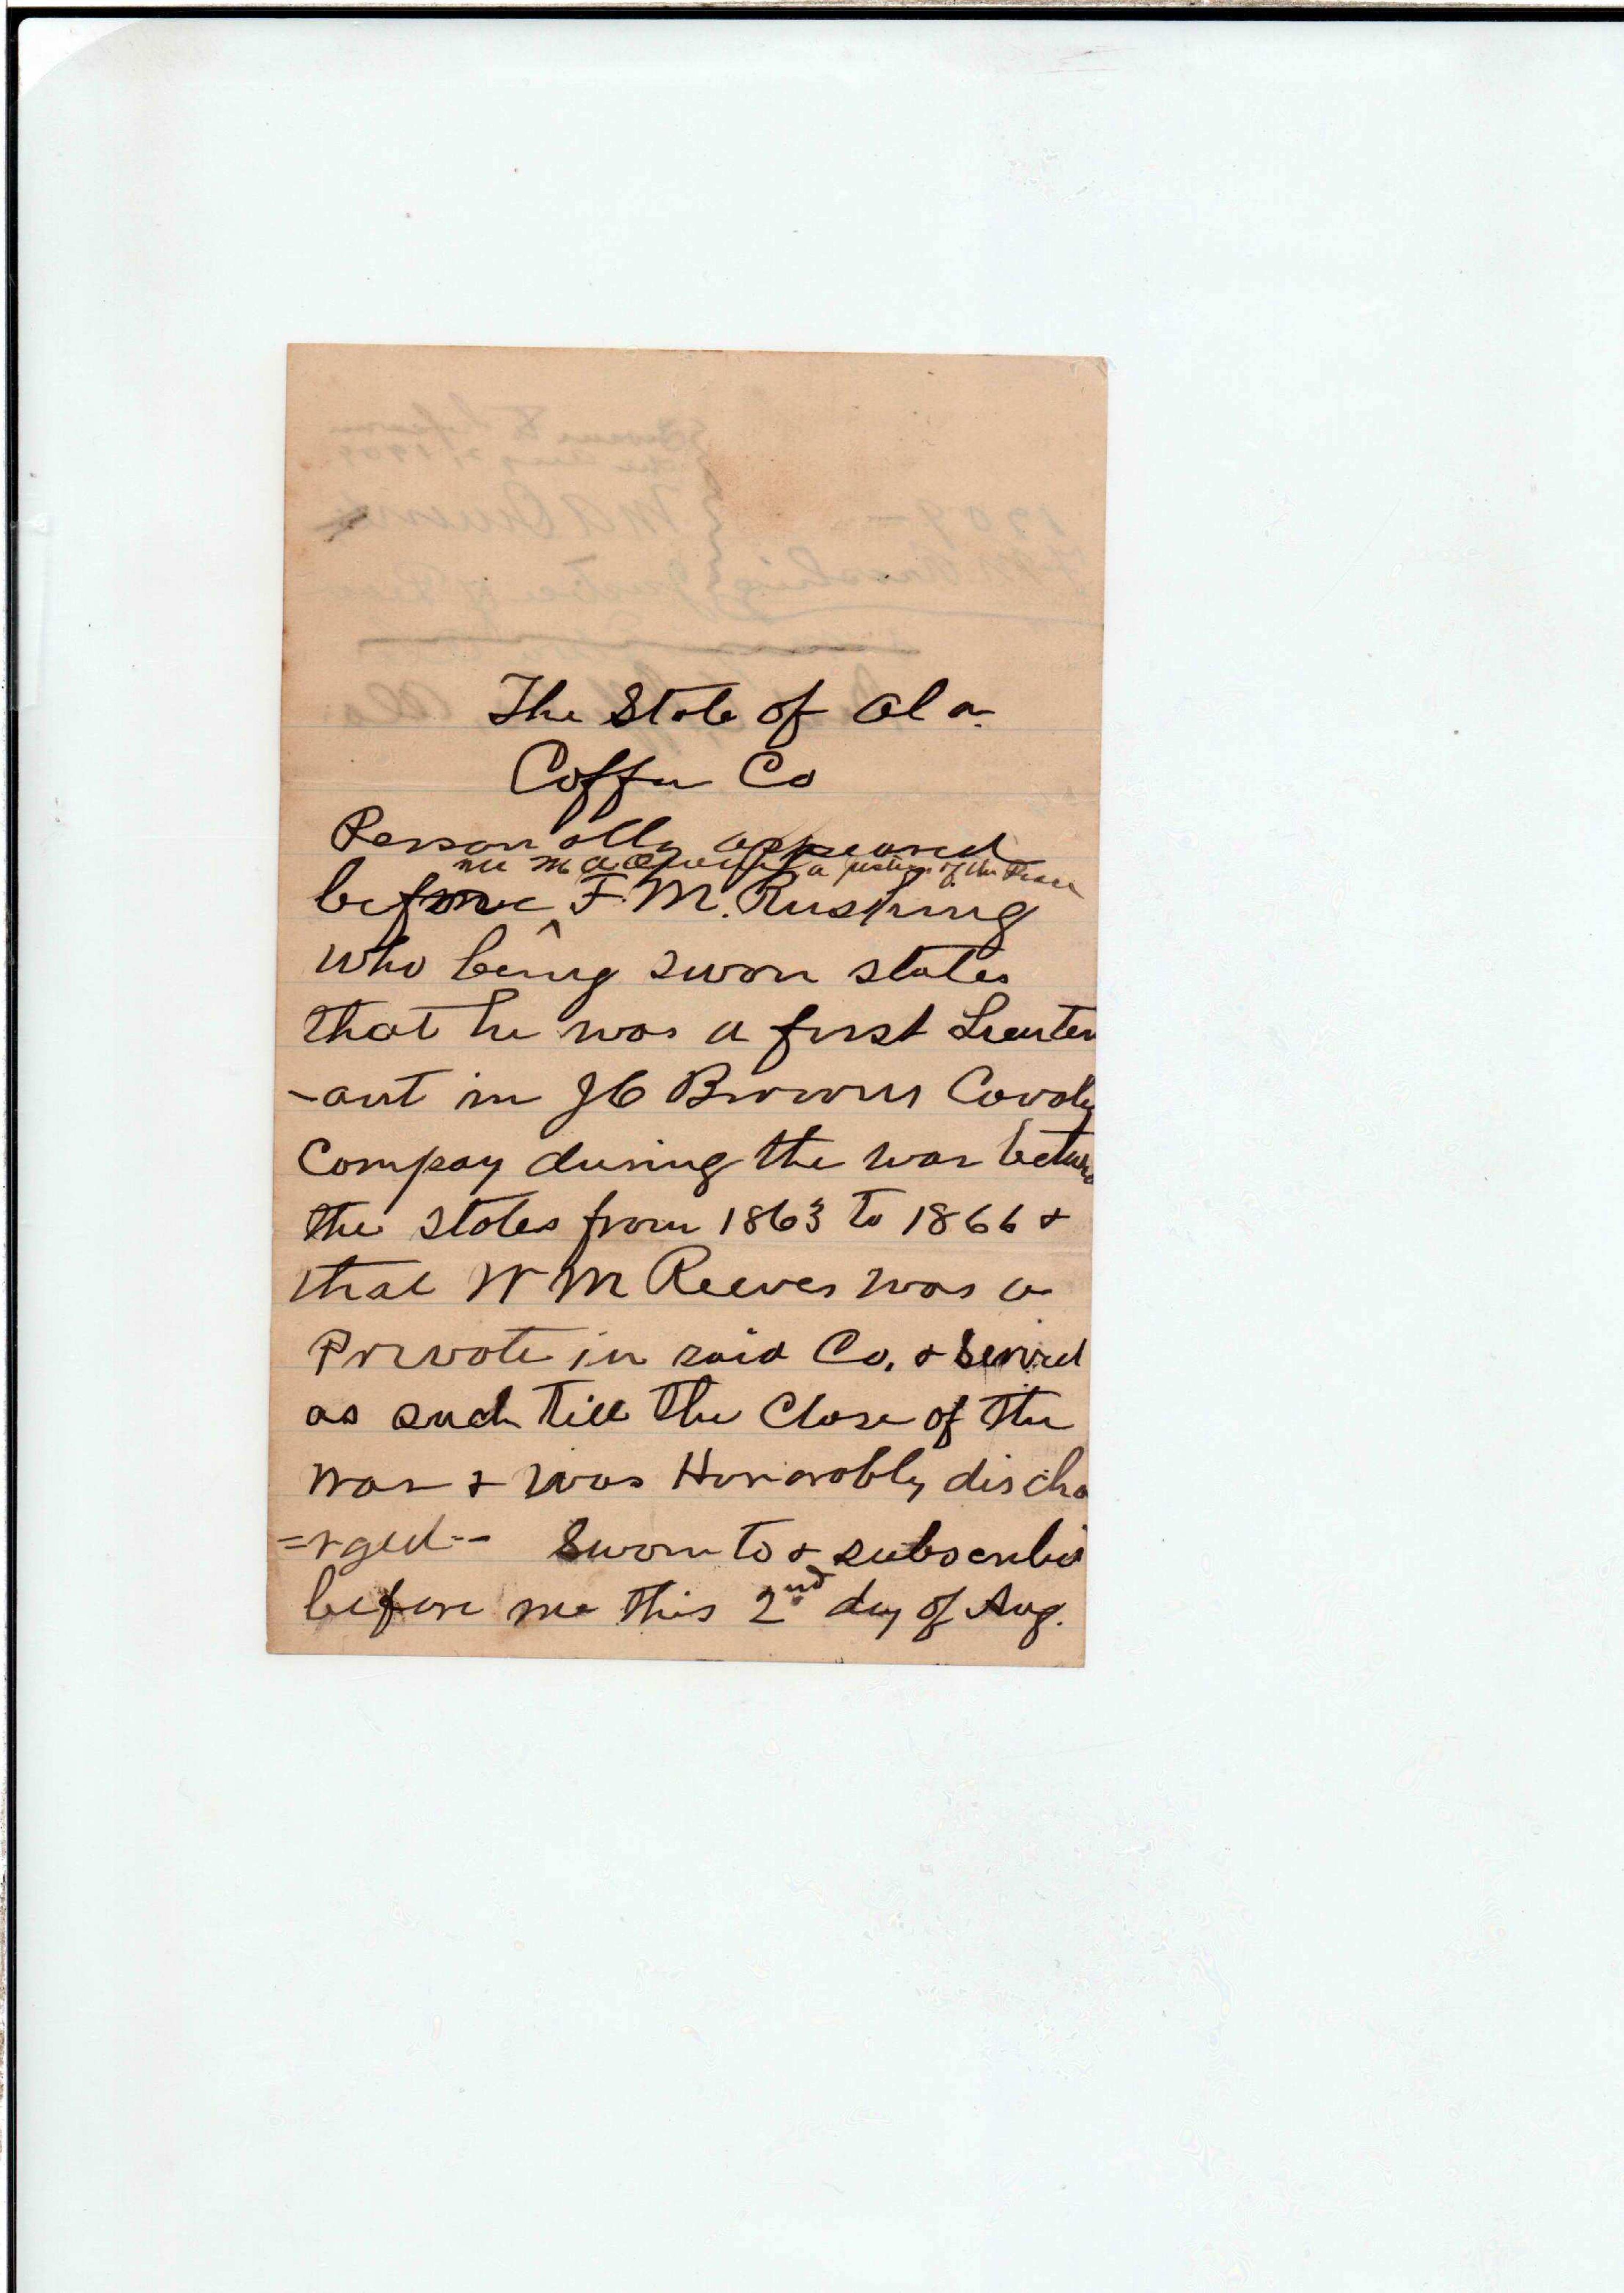 The State of Ala.
Coffee Co
Personally appeared
me M A a justice of the Peace
before ^ F. M. Rushing
who being sworn states
that he was a first Lieuten
-ant in J C Browns Cavalry
Compay during the war between
the states from 1863 to 1866 &
that W M Reeves was a
Private in said Co. & served
as such till the Close of the
war & was Honorably discha
=rged-- Sworn to & subscribed
before me this 2nd day of Aug.